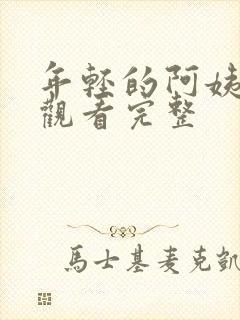 年輕的阿姨
觀看完整
馬士基麥克凱